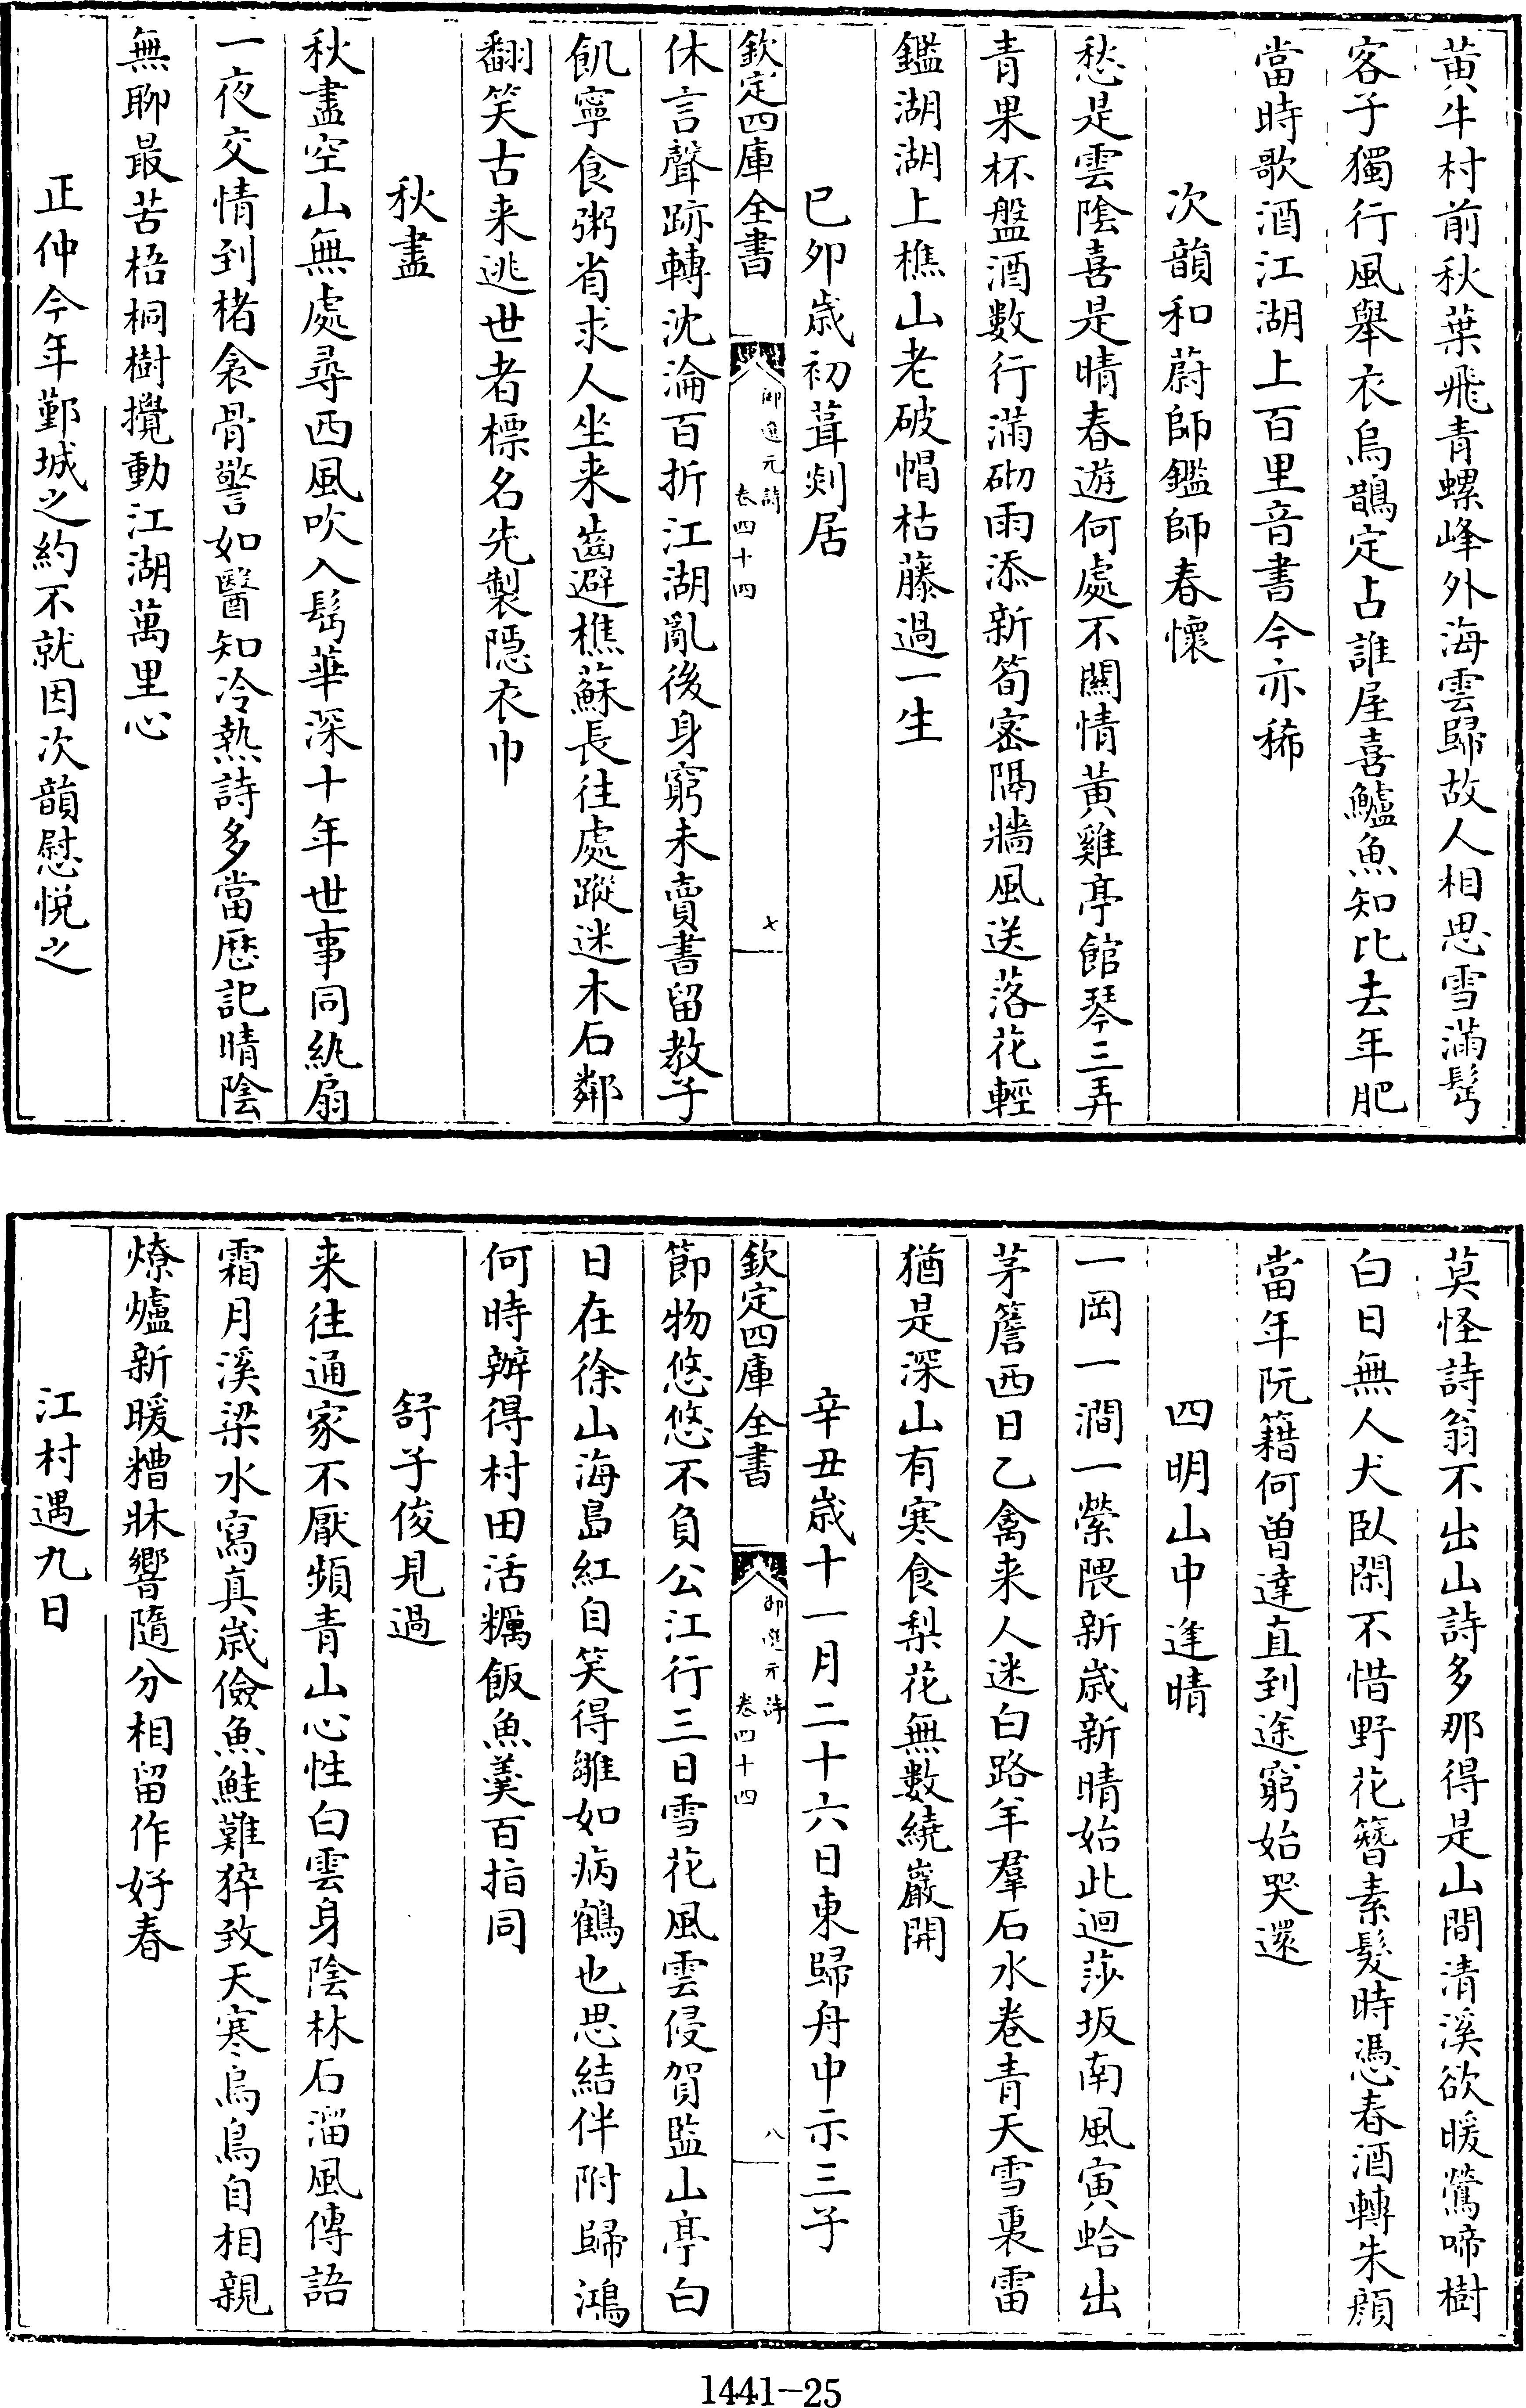 黄牛村前秋葉飛青螺峰外海雲歸故人相思雪滿髩
客子獨行風舉衣烏鵲定占誰屋喜鱸魚知比去年肥
當時歌酒江湖上百里音書今亦稀
次韻和蔚師鑑師春懐
愁是雲隂喜是晴春遊何處不關情黄雞亭館琴三弄
青果杯盤酒數行滿砌雨添新筍密隔牆風送落花輕
鑑湖湖上樵山老破帽枯藤過一生
已夘歳初葺剡居
欽定四庫全書
御選元詩
卷四十四
七
休言聲跡轉沈淪百折江湖亂後身窮未賣書留教子
飢寧食粥省求人坐来齒避樵蘇長往處蹤迷木石鄰
翻笑古来逃世者標名先製隠衣巾
秋盡
秋盡空山無處尋西風吹入髩華深十年世事同紈扇
一夜交情到楮衾骨警如醫知冷熱詩多當厯記晴隂
無聊最苦梧桐樹攪動江湖萬里心
正仲今年鄞城之約不就因次韻慰悦之
莫怪詩翁不出山詩多那得是山間清溪欲暖鶯啼樹
白日無人犬臥閑不惜野花簪素髮時憑春酒轉朱顔
當年阮籍何曽達直到途窮始哭還
四明山中逢晴
一岡一澗一縈隈新歳新晴始此迴莎坂南風寅蛤出
茅簷西日乙禽来人迷白路羊羣石水卷青天雪裏雷
猶是深山有寒食梨花無數繞巖開
辛丑歳十一月二十六日東歸舟中示三子
欽定四庫全書
御選元詩
卷四十四
八
節物悠悠不負公江行三日雪花風雲侵賀監山亭白
日在徐山海島紅自笑得雛如病鶴也思結伴附歸鴻
何時辦得村田活糲飯魚羮百指同
舒子俊見過
来往通家不厭頻青山心性白雲身隂林石溜風傳語
霜月溪梁水寫真歳儉魚鮭難猝致天寒烏鳥自相親
燎爐新暖糟牀響隨分相留作好春
江村遇九日
1441-25